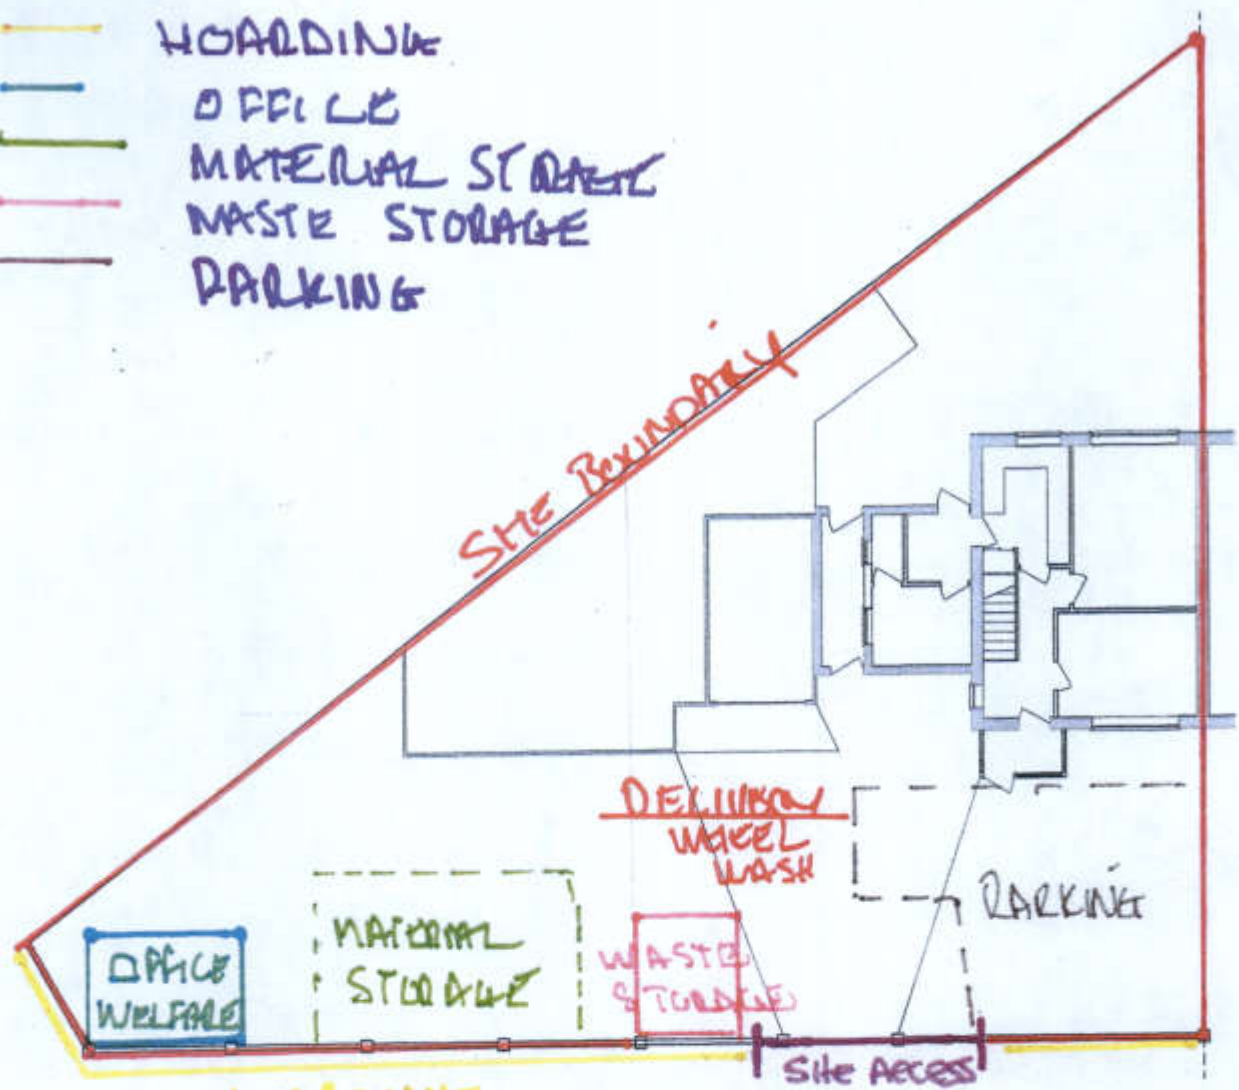 HOARDING
OFFICE
MATERIAL STORAGE
WASTE STORAGE
PARKING
SITE BOUNDARY
DELIVERY
WHEEL
WASH
PARKING
OFFICE
WELFARE
MATERIAL
STORAGE
WASTE
STORAGE
SITE ACCESS